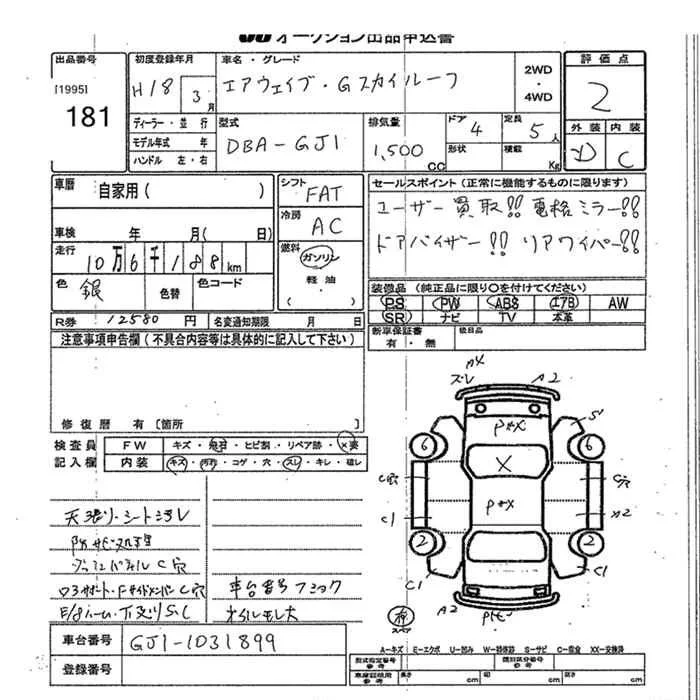 オークション出品申込書
出品番号
[1995]
181
初度登録年月
H18 3月
車名・グレード
エアウェイブ・Gスカイルーフ
2WD
・
4WD
評価点
2
外装 内装
D C
ディーラー・並行
モデル年式 年
ハンドル 左・右
型式
DBA-GJ1
排気量
1,500 cc
ドア 4
形状
定員 5人
積載 Kg
車歴 自家用( )
車検 年 月( 日)
走行
10万6千188km
色 銀
色替
色コード
シフト
FAT
冷房
AC
燃料
ガソリン
・
軽油
( )
セールスポイント(正常に機能するものに限ります)
ユーザー買取!! 電格ミラー!!
ドアバイザー!! リアワイパー!!
装備品(純正品に限り○を付けてください)
PS PW ABS エアB AW
SR ナビ TV 本革
新車保証書
有・無
後日品
R券 12580円
名変通知期限 月 日
注意事項申告欄(不具合内容等は具体的に記入して下さい)
修復歴 有 [箇所 ]
検査員
記入欄
FW キズ・飛石・ヒビ割・リペア跡・×要
内装 キズ・汚れ・コゲ・穴・スレ・キレ・破レ
天張り・シート汚レ
C穴
C穴
車台番号
オイルモレ大
ズレ
AX
A2
P*X
6
6
X
P*X
C穴
C穴
C1
A2
2
2
C1
C1
A2
スペア
車台番号 GJ1-1031899
登録番号
A-キズ E-エクボ U-凹み W-補修跡 S-サビ C-腐食 XX-交換跡
型式指定番号
参考
類別区分番号
参考
車庫証明用
参考
長さ cm 幅 cm 高さ cm